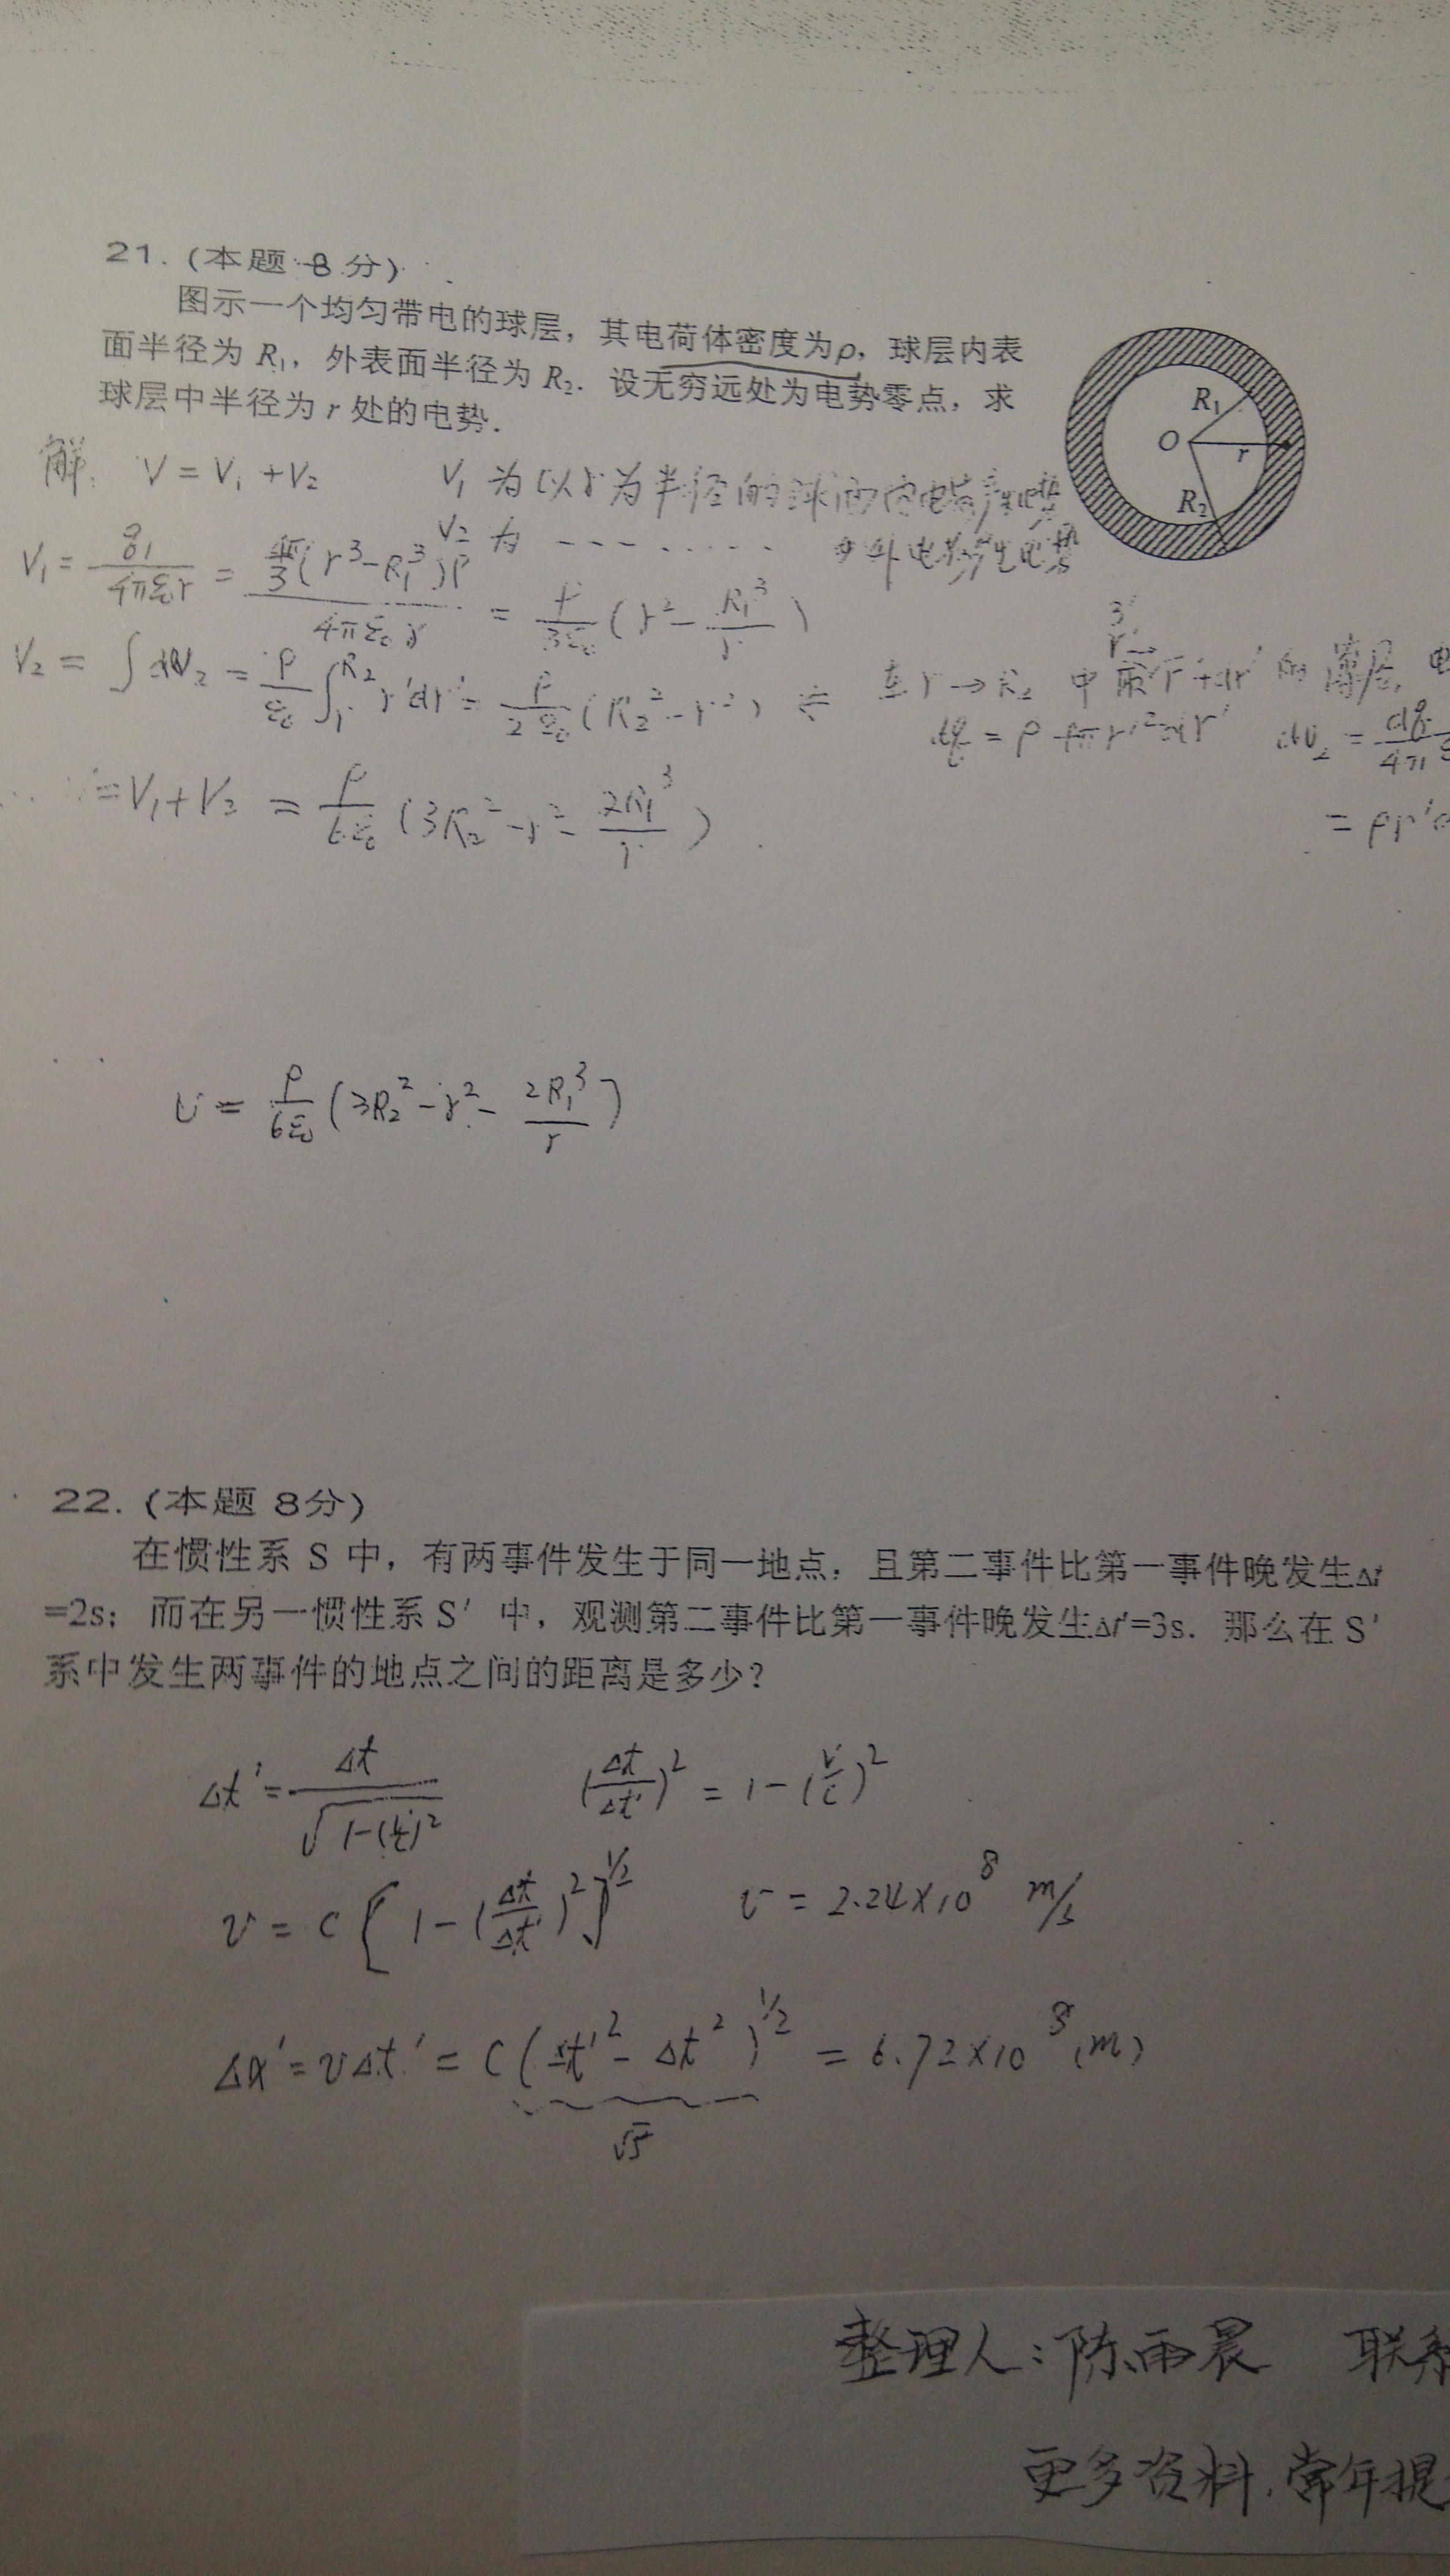 21. (本题 8 分)
图示一个均匀带电的球层，其电荷体密度为ρ，球层内表
面半径为 R₁，外表面半径为 R₂．设无穷远处为电势零点，求
球层中半径为 r 处的电势．
R₁
O
r
R₂
解： V = V₁ + V₂ V₁ 为以 r 为半径的球面内电荷产生电势
V₂ 为 - - - - - - - - 外电荷产生电势
V₁ = q₁/4πε₀r = (4π/3)(r³-R₁³)ρ / 4πε₀r = ρ/3ε₀ (r² - R₁³/r)
V₂ = ∫dV₂ = ρ/ε₀ ∫_r^R₂ r'dr' = ρ/2ε₀ (R₂² - r²) ⇐ 在 r → R₂ 中取 r'→r'+dr' 的薄层,
dq = ρ 4πr'²dr' dV₂ = dq/4π
= V₁+V₂ = ρ/6ε₀ (3R₂² - r² - 2R₁³/r)
= ρr'
U = ρ/6ε₀ (3R₂² - r² - 2R₁³/r)
22. (本题 8分)
在惯性系 S 中，有两事件发生于同一地点，且第二事件比第一事件晚发生Δt
=2s；而在另一惯性系 S′ 中，观测第二事件比第一事件晚发生Δt′=3s．那么在 S′
系中发生两事件的地点之间的距离是多少？
Δt' = Δt/√(1-(v/c)²) (Δt/Δt')² = 1-(v/c)²
v = c[1-(Δt/Δt')²]^1/2 v = 2.24×10⁸ m/s
Δx' = vΔt' = c(Δt'² - Δt²)^1/2 = 6.72×10⁸ (m)
√5
整理人：陈雨晨 联系
更多资料，常年提